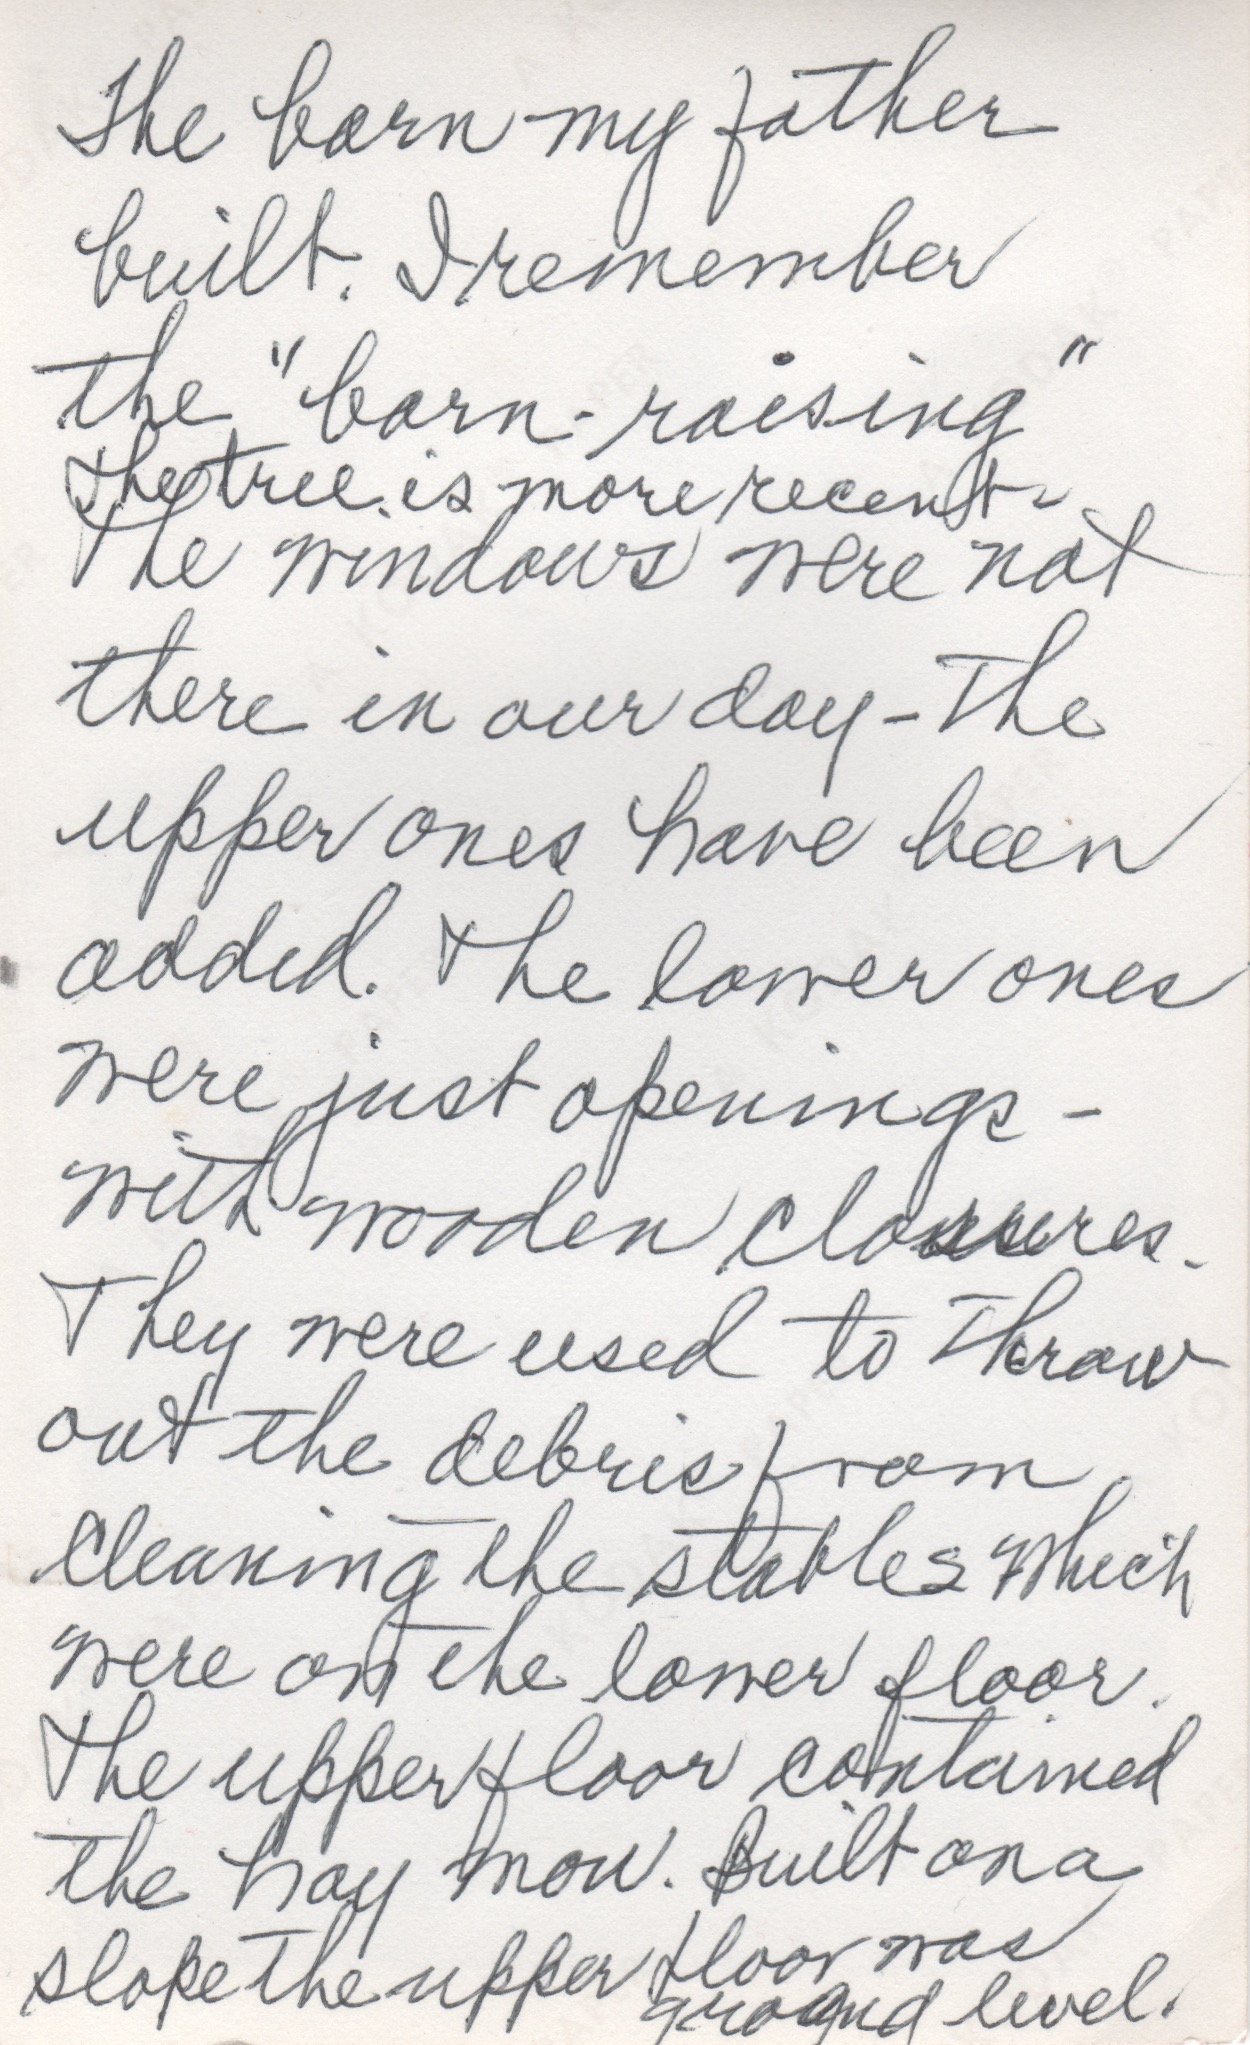 The barn my father
built. I remember
the "barn-raising"
The tree is more recent-
The windows were not
there in our day - The
upper ones have been
added. The lower ones
were just openings -
with wooden closures.
They were used to throw
out the debris from
cleaning the stables which
were on the lower floor.
The upper floor contained
the hay mow. Built on a
slope the upper floor was
ground level.